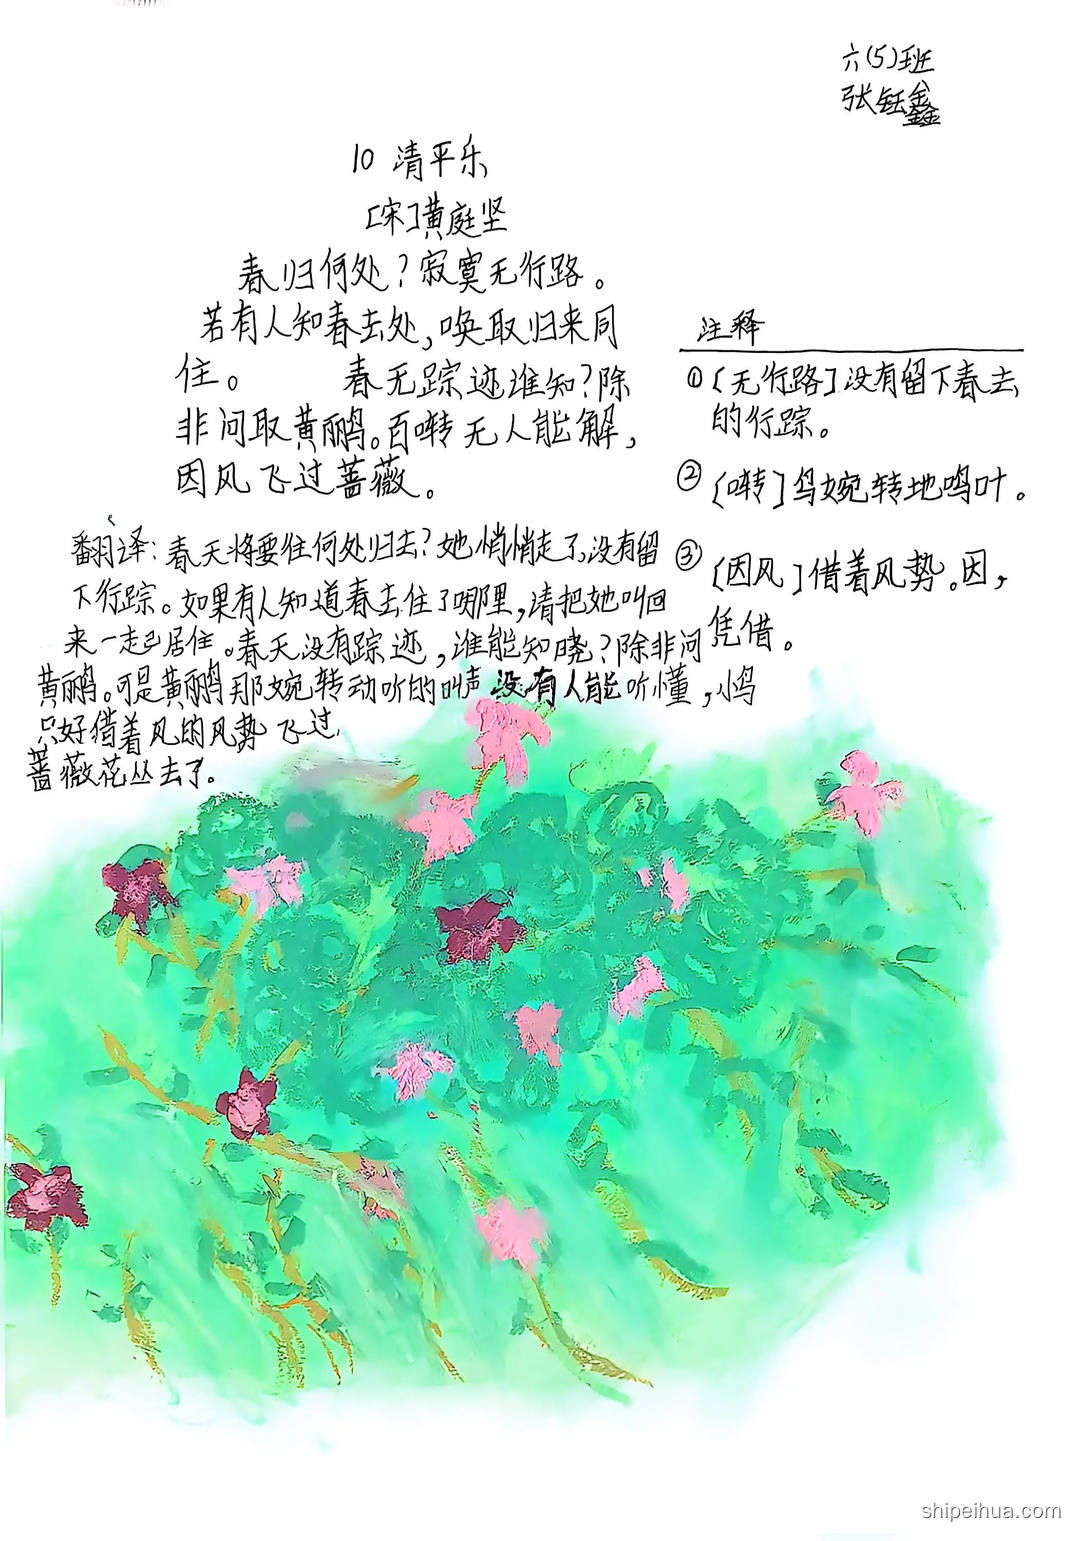 六(5)班
张钰鑫
10 清平乐
[宋]黄庭坚
春归何处?寂寞无行路。
若有人知春去处,唤取归来同
住。 春无踪迹谁知?除
非问取黄鹂。百啭无人能解,
因风飞过蔷薇。
注释
①[无行路]没有留下春去
的行踪。
②[啭]鸟婉转地鸣叶。
③[因风]借着风势。因,
凭借。
翻译:春天将要往何处归去?她悄悄走了,没有留
下行踪。如果有人知道春去住了哪里,请把她叫回
来一起居住。春天没有踪迹,谁能知晓?除非问
黄鹂。可是黄鹂那婉转动听的叫声没有人能听懂,小鸟
只好借着风的风势飞过
蔷薇花丛去了。
shipeihua.com